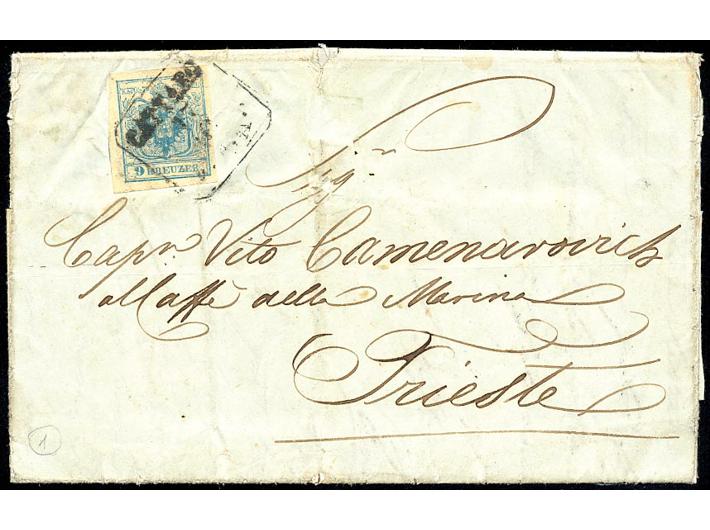 CATTARO
9 KREUZER
Sigr
Capn Vito Camenarovich
al Caffè della Marina
Trieste
1